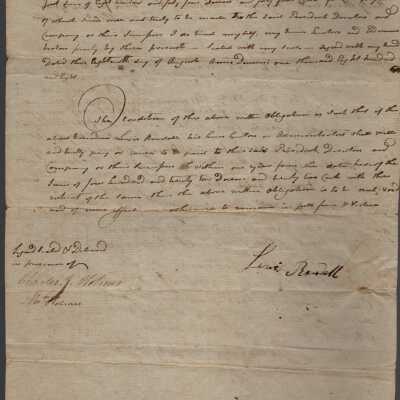 just sum of eight hundred and forty four Dollars and forty four Cents for the payment
of which well and truly to be made to the said President Directors and
Company or their Successors I do bind myself, my heirs Executors and Administrators
firmly by these presents Sealed with my seal and Signed with my hand
dated this Eighteenth day of August Anno Domini one thousand Eight hundred
and Eight
The Condition of the above written Obligation is Such that if the
above bounden Levi Rowell his heirs Executors or Administrators shall well
and truly pay or cause to be paid to the said President Directors and
Company or their Successors within one year from the date hereof the
Sum of four hundred and twenty two Dollars and twenty two Cents with the
interest of the same then the above written Obligation is to be null, void
and of none effect otherwise to remain in full force & Virtue
Signed Sealed & Delivered
in presence of
Charles J. Holmes
Holmes
Levi Rowell